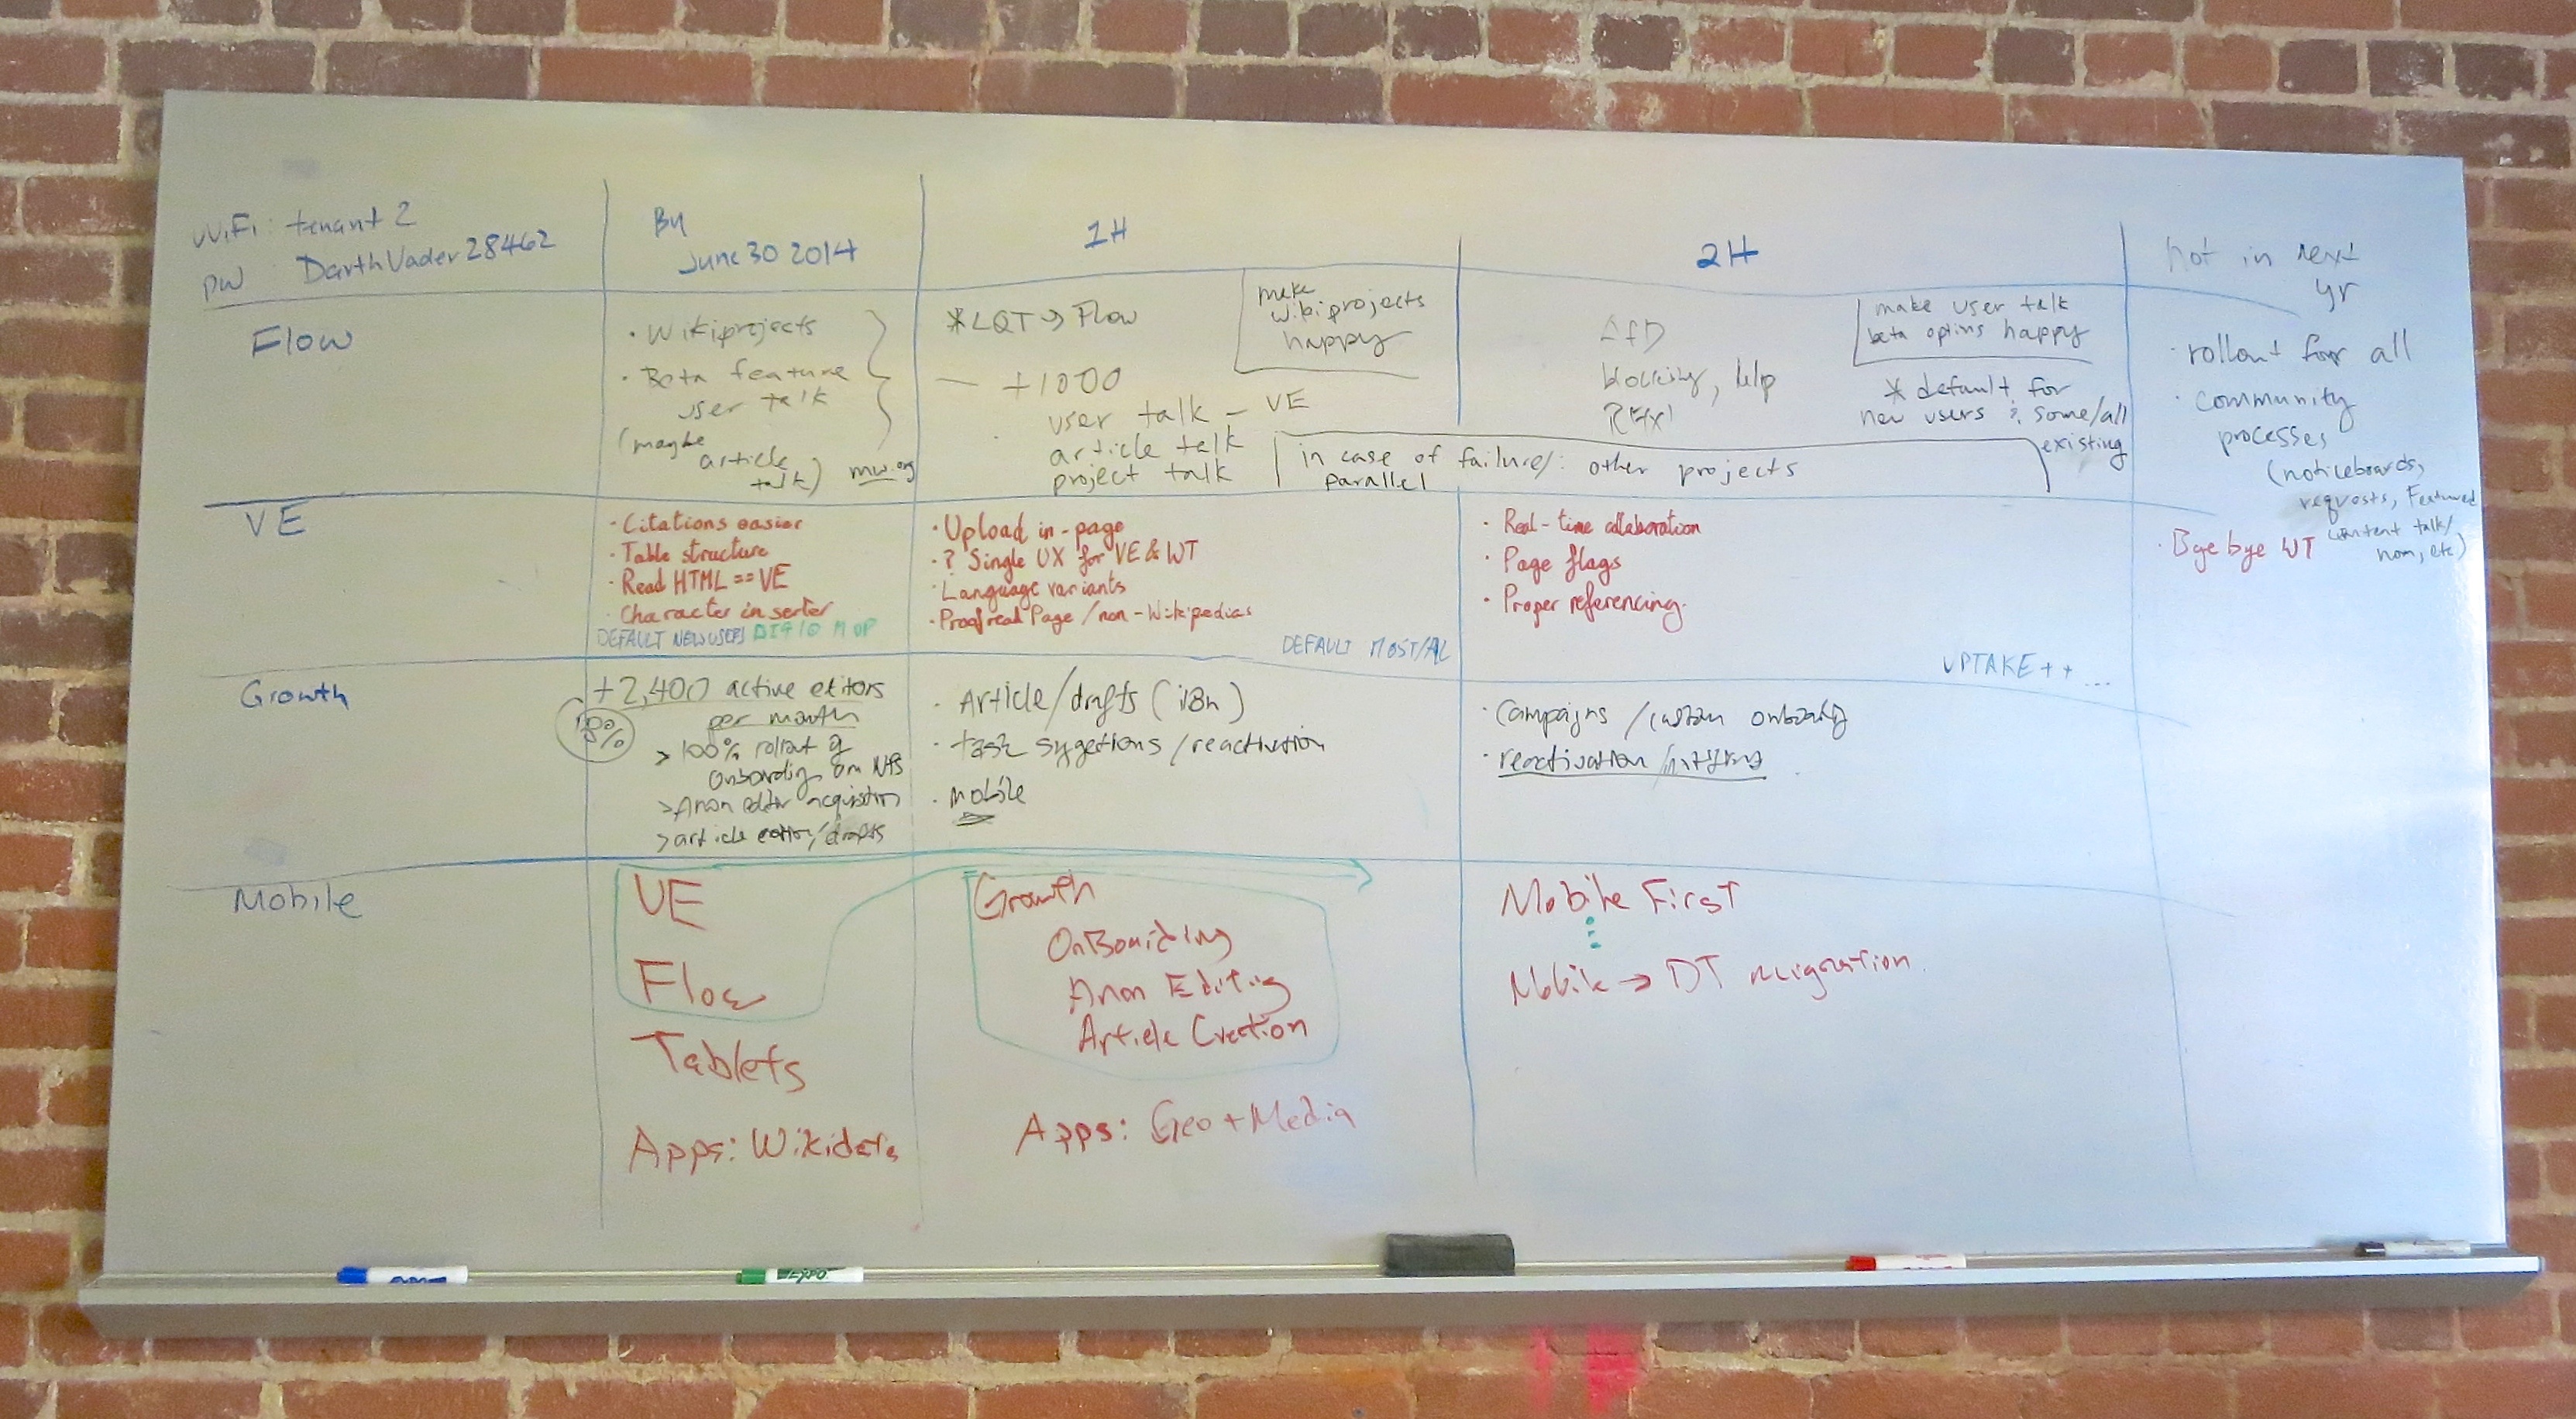 WiFi: tenant 2
pw DarthVader28462
By
June 30 2014
1H
2H
not in next
yr
Flow
• Wikiprojects
• Beta feature
user talk
(maybe
article
talk) mw.org
*LQT → Flow
make
wikiprojects
happy
— +1000
user talk – VE
article talk
project talk
in case of failure/: other projects
parallel
AfD
blocking, help
make user talk
beta optins happy
* default for
new users & some/all
existing
• rollout for all
• community
processes
(noticeboards,
requests, Featured
content talk/
nom, etc)
VE
• Citations easier
• Table structure
• Read HTML == VE
• Character inserter
DEFAULT NEW USERS
• Upload in-page
• ? Single UX for VE & WT
• Language variants
• Proofread Page / non-Wikipedias
DEFAULT MOST/AL
• Real-time collaboration
• Page flags
• Proper referencing.
UPTAKE++...
• Bye bye WT
Growth
+2,400 active editors
per month
> 100% rollout of
onboarding on
> Anon editor acquisition
> article /drafts
• Article/drafts (i18n)
• task sygestions/reactivation
• mobile
• campaigns / custom onboarding
• reactivation /
Mobile
VE
Flow
Tablets
Apps: Wikidata
Growth
OnBoarding
Anon Editing
Article Creation
Apps: Geo + Media
Mobile First
or
Mobile → DT migration.
EXPO